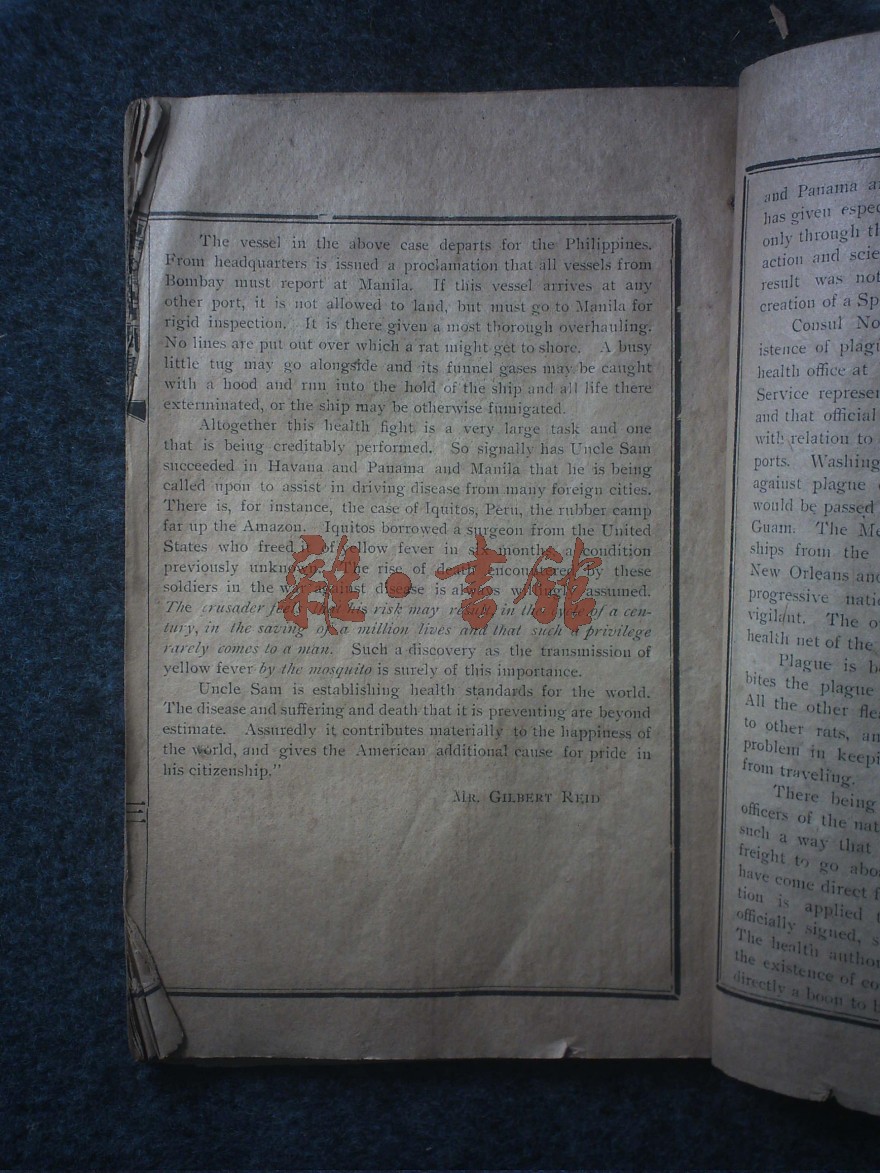 The vessel in the above case departs for the Philippines.
From headquarters is issued a proclamation that all vessels from
Bombay must report at Manila. If this vessel arrives at any
other port, it is not allowed to land, but must go to Manila for
rigid inspection. It is there given a most thorough overhauling.
No lines are put out over which a rat might get to shore. A busy
little tug may go alongside and its funnel gases may be caught
with a hood and run into the hold of the ship and all life there
exterminated, or the ship may be otherwise fumigated.
Altogether this health fight is a very large task and one
that is being creditably performed. So signally has Uncle Sam
succeeded in Havana and Panama and Manila that he is being
called upon to assist in driving disease from many foreign cities.
There is, for instance, the case of Iquitos, Peru, the rubber camp
far up the Amazon. Iquitos borrowed a surgeon from the United
States who freed it of yellow fever in six months, a condition
previously unknown. The rise of death encountered by these
soldiers in the war against disease is always willingly assumed.
The crusader feels that his risk may result in the cycle of a cen-
tury, in the saving of a million lives and that such a privilege
rarely comes to a man. Such a discovery as the transmission of
yellow fever by the mosquito is surely of this importance.
Uncle Sam is establishing health standards for the world.
The disease and suffering and death that it is preventing are beyond
estimate. Assuredly it contributes materially to the happiness of
the world, and gives the American additional cause for pride in
his citizenship."
Mr. Gilbert Reid
書館
and Panama
has given
only through
action and
result was not
creation of a
Consul
istence of
health office at
Service
and that official
with relation to
ports.
against plague
would be passed
Guam. The
ships from the
New Orleans and
progressive
vigilant. The
health net of the
Plague is
bites the plague
All the other
to other rats,
problem in
from traveling.
There being
officers of the
such a way that
freight to go
have come direct
tion is applied
officially signed,
The health
the existence of
directly a boon to